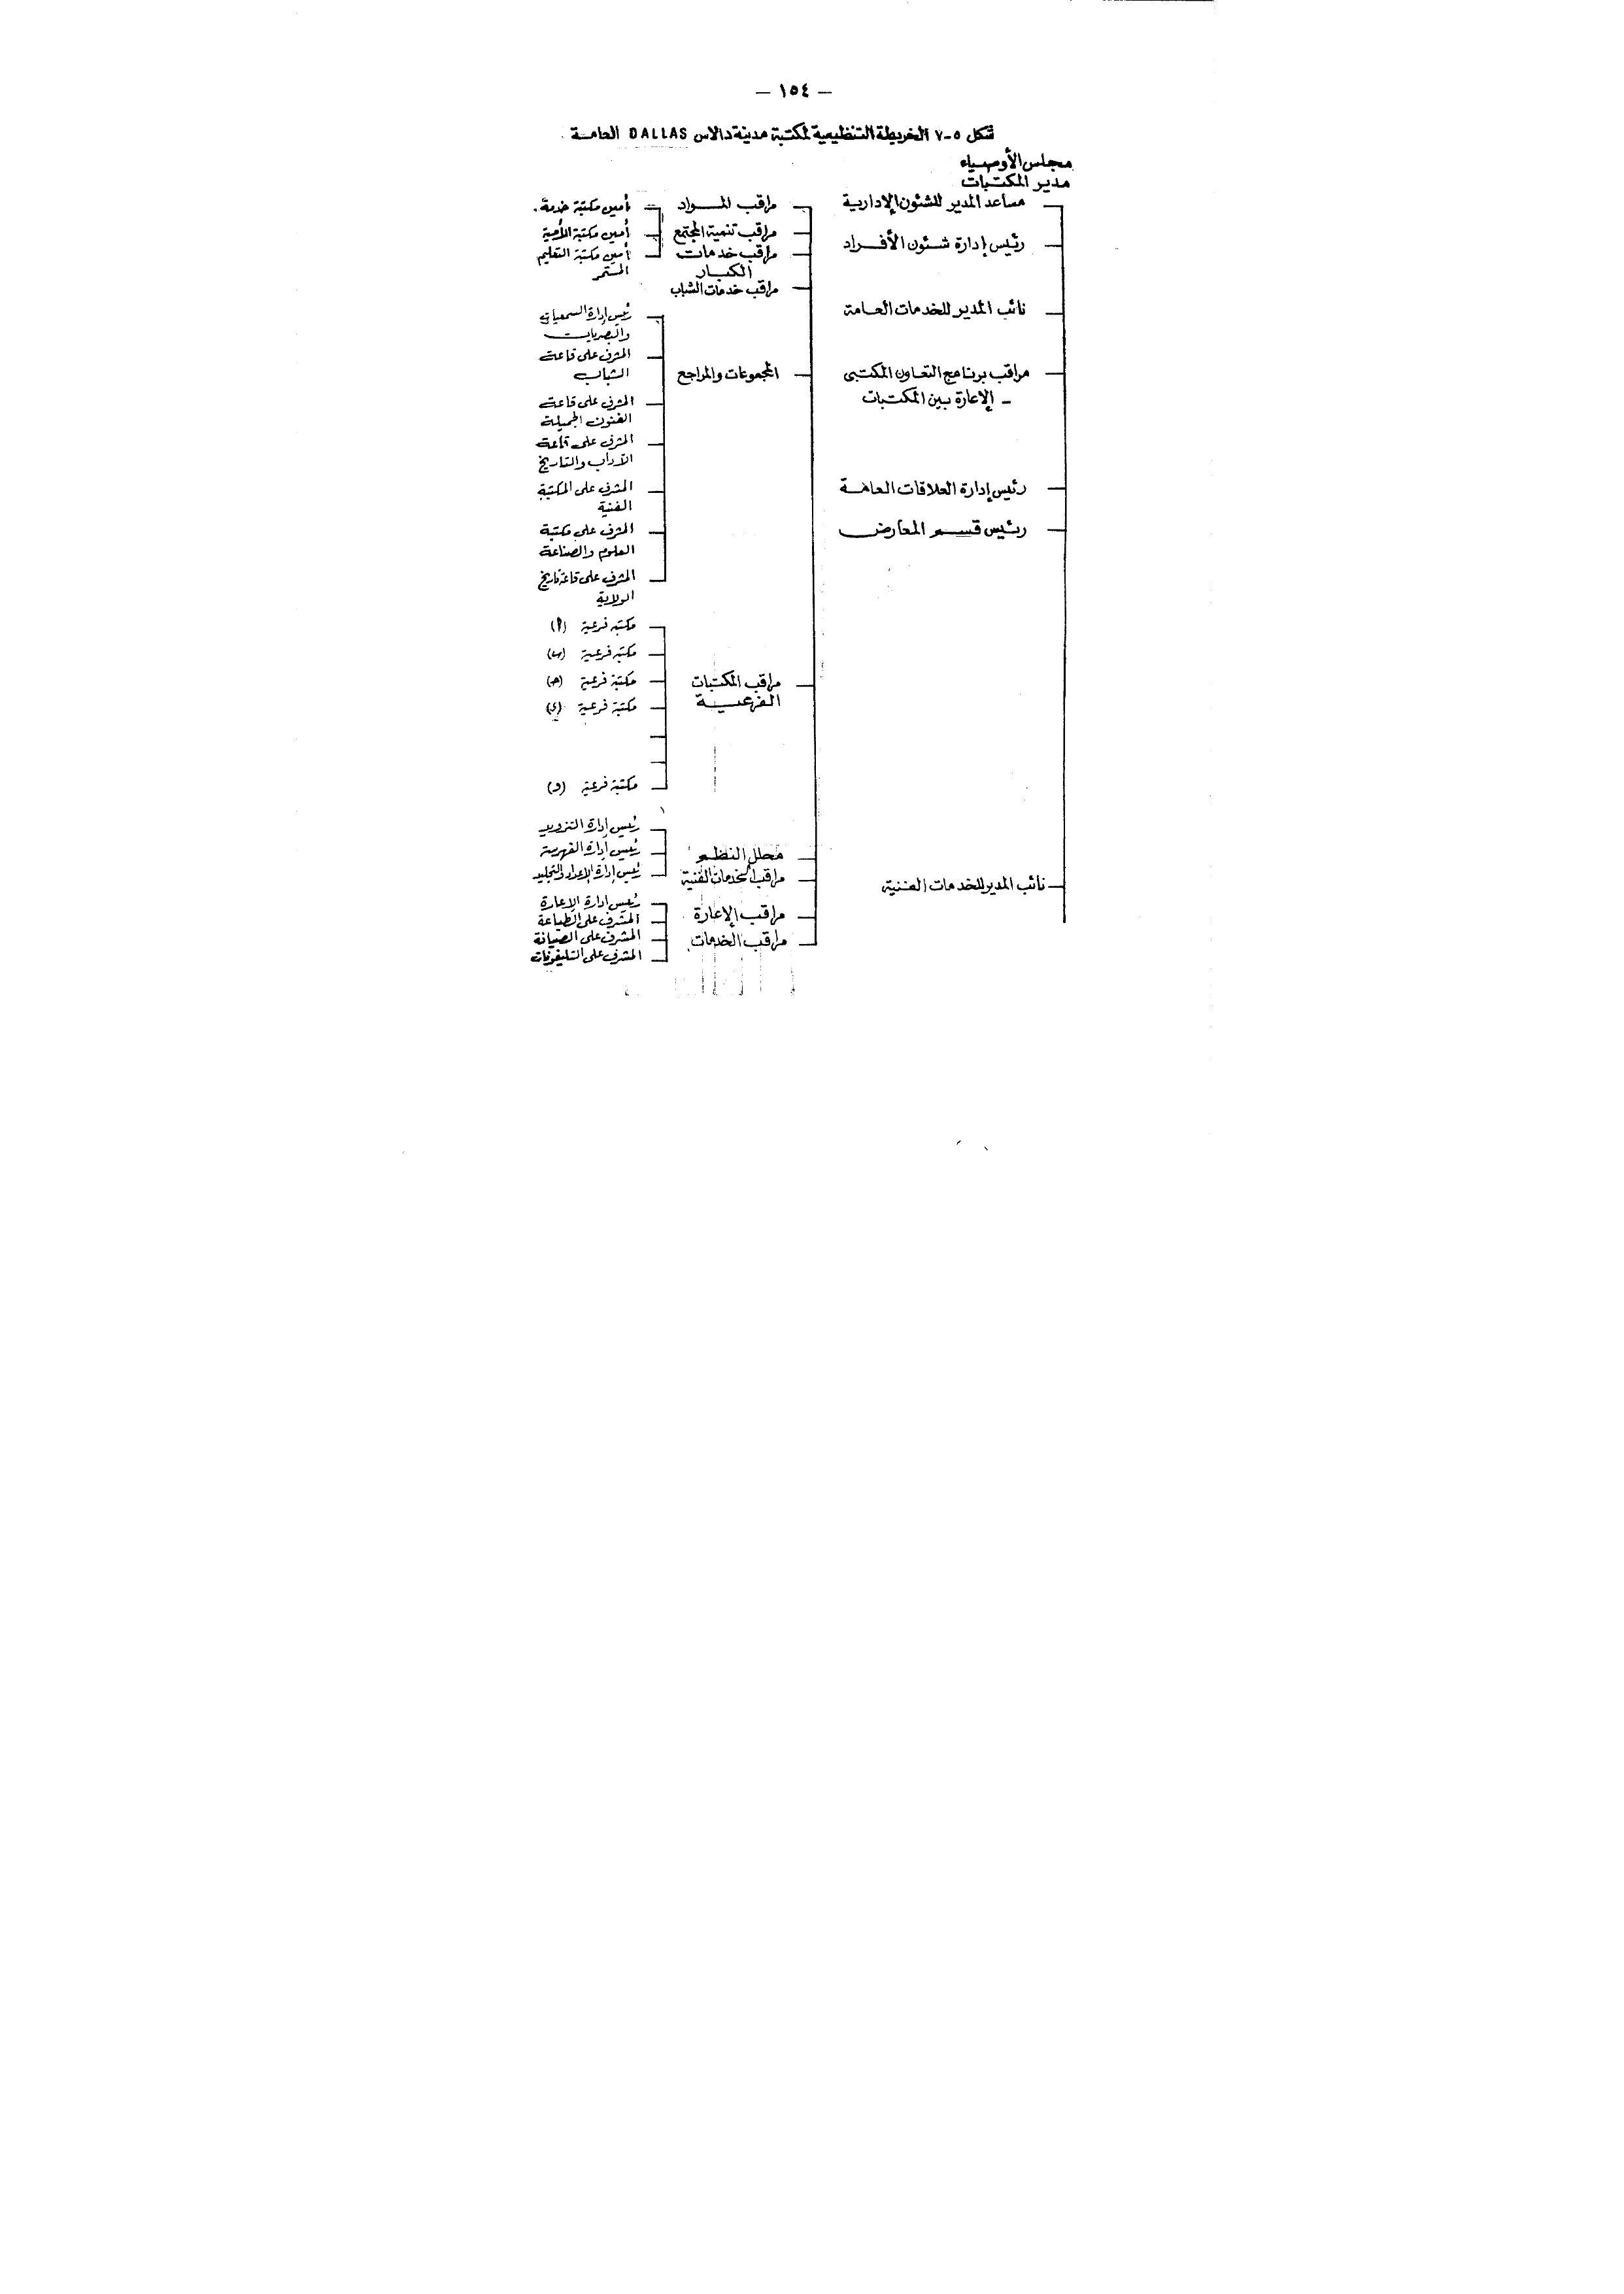 — ١٥٤ —
شكل ٥-٧ الخريطة التنظيمية لمكتبة مدينة دالاس DALLAS العامة
مجلس الأوصياء
مدير المكتبات
مساعد المدير للشئون الإدارية
رئيس إدارة شئون الأفراد
نائب المدير للخدمات العامة
مراقب برنامج التعاون المكتبى
- الإعارة بين المكتبات
رئيس إدارة العلاقات العامة
رئيس قسم المعارض
نائب المدير للخدمات الفنية
مراقب المواد
مراقب تنمية المجتمع
مراقب خدمات
الكبار
مراقب خدمات الشباب
المجموعات والمراجع
مراقب المكتبات
الفرعية
محلل النظم
مراقب الخدمات الفنية
مراقب الإعارة
مراقب الخدمات
أمين مكتبة خدمة
أمين مكتبة
أمين مكتبة التعليم
المستمر
رئيس إدارة السمعيات
والبصريات
المشرف على قاعة
الشباب
المشرف على قاعة
الفنون الجميلة
المشرف على قاعة
الآداب والتاريخ
المشرف على المكتبة
الفنية
المشرف على مكتبة
العلوم والصناعة
المشرف على قاعة تاريخ
الولاية
مكتبة فرعية (أ)
مكتبة فرعية (ب)
مكتبة فرعية (هـ)
مكتبة فرعية (ى)
مكتبة فرعية (و)
رئيس إدارة التزويد
رئيس إدارة الفهرسة
رئيس إدارة الإعداد والتجليد
رئيس إدارة الإعارة
المشرف على الطباعة
المشرف على الصيانة
المشرف على التليفونات